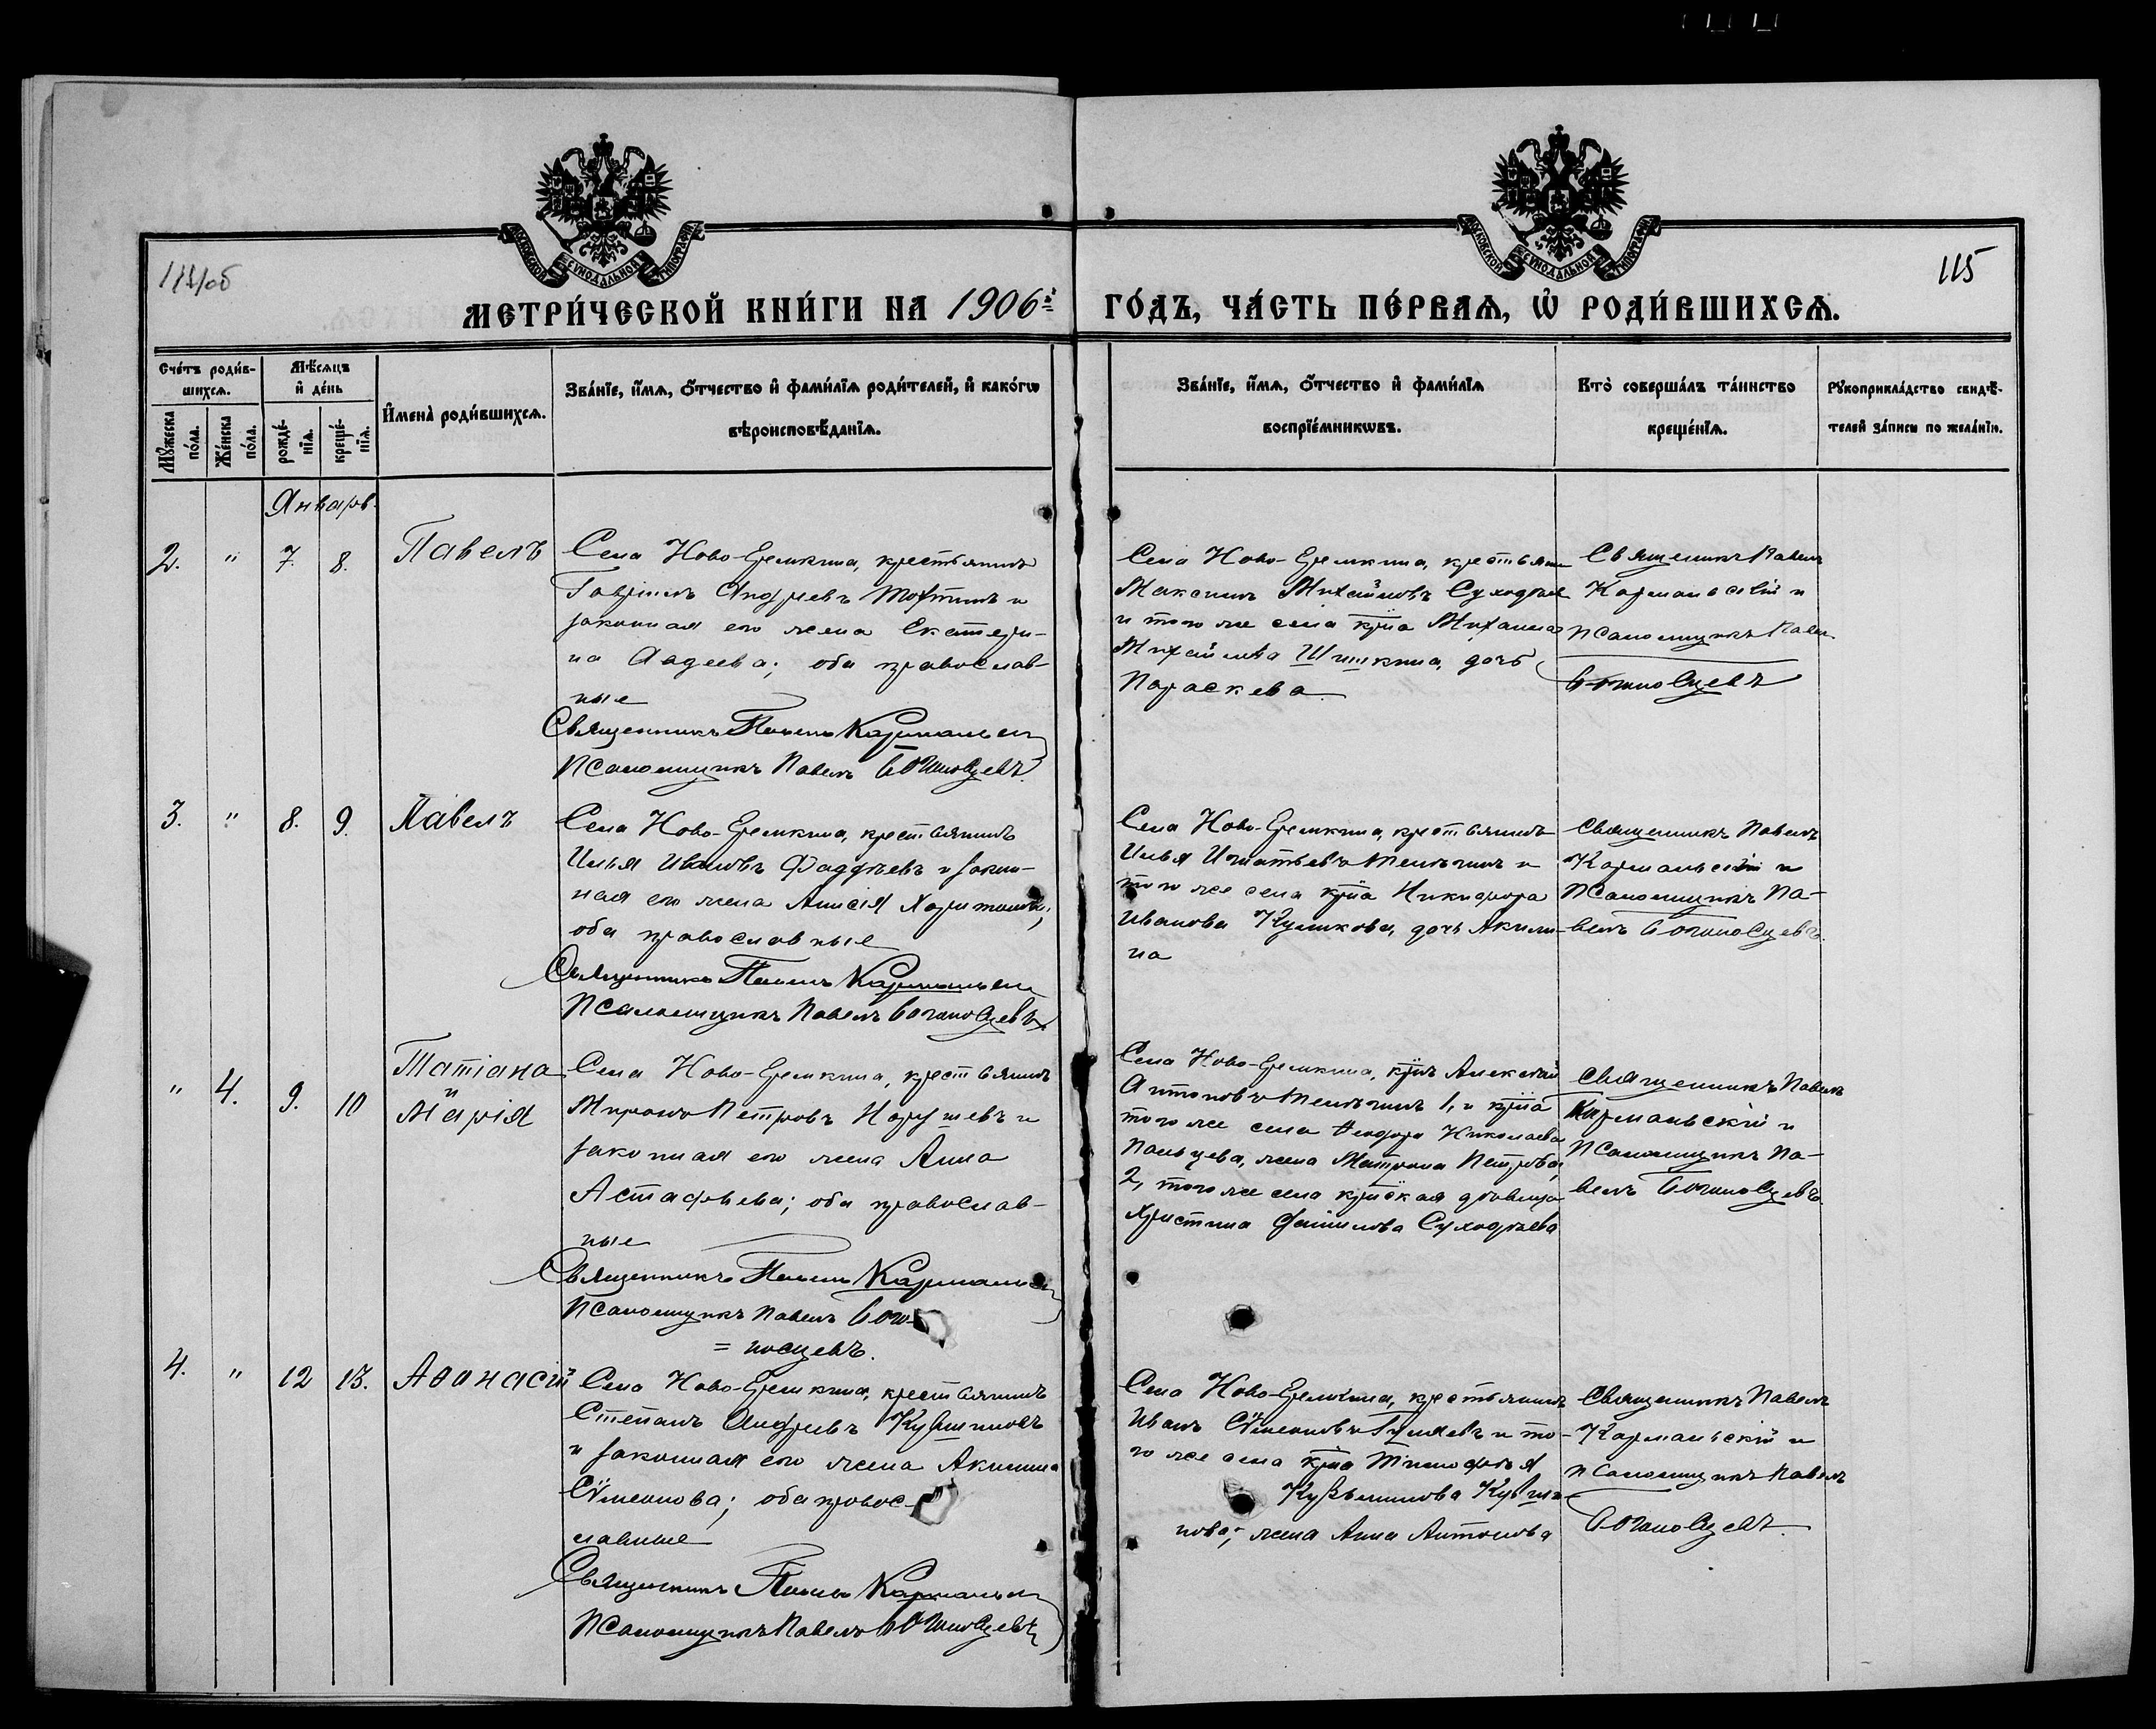 114об
115
МОСКОВСКОЙ СѴНОДАЛЬНОЙ ТИПОГРАФІИ
МОСКОВСКОЙ СѴНОДАЛЬНОЙ ТИПОГРАФІИ
МЕТРИ́ЧЕСКОЙ КНИ́ГИ НА 1906й ГО́ДЪ, ЧА́СТЬ ПЕ́РВАѦ, Ѡ҆ РОДИ́ВШИХСѦ.
Сче́тъ роди́в-
шихсѧ.
Мꙋ́жеска по́ла.
Же́нска по́ла.
Мѣ́сяцъ
и҆ де́нь
рожде́-
нїѧ.
креще́-
нїѧ.
И҆мена̀ роди́вшихсѧ.
Зва́нїе, и҆́мѧ, ѻ҆́тчество и҆ фами́лїѧ роди́телей, и҆ како́гѡ
вѣроисповѣ́данїѧ.
Зва́нїе, и҆́мѧ, ѻ҆́тчество и҆ фами́лїѧ
воспрїе́мникѡвъ.
Кто̀ соверша́лъ та́инство
креще́нїѧ.
Рꙋкоприкла́дство свидѣ́-
телей за́писи по жела́нїю.
Январь.
2.
"
7.
8.
Павелъ
Села Ново-Еремкина, крестьянинъ
Гавріилъ Андреевъ и
законная его жена Екатери-
на Авдеева; оба православ-
ные
Священникъ Павелъ Карманьскій
Псаломщикъ Павелъ Богоносцевъ.
Села Ново-Еремкина, крестьянинъ
Максимъ Михайловъ Суходѣевъ
и того же села кр̃на Михаила
Михайлова Шишкина, дочь
Параскева
Священникъ Павелъ
Карманьскій и
псаломщикъ Павелъ
Богоносцевъ
3.
"
8.
9.
Павелъ
Села Ново-Еремкина, крестьянинъ
Илья Ивановъ Фаддѣевъ и закон-
ная его жена Анисія Харитонова;
оба православные
Священникъ Павелъ Карманьскій
Псаломщикъ Павелъ Богоносцевъ.
Села Ново-Еремкина, крестьянинъ
Илья Игнатьевъ и
того же села кр̃на Никифора
Иванова Куликова, дочь Акили-
на
Священникъ Павелъ
Карманьскій и
псаломщикъ Па-
велъ Богоносцевъ.
"
4.
9.
10
Татіана
и
Марія
Села Ново-Еремкина, крестьянинъ
Миронъ Петровъ и
законная его жена Анна
Астафьева; оба православ-
ные
Священникъ Павелъ Карманьскій
Псаломщикъ Павелъ Бого-
= носцевъ.
Села Ново-Еремкина, кр̃нъ Алексѣй
Антоновъ 1, и кр̃на
того же села Ѳеодора Николаева
Пальцева, жена Матрона Петрова,
2, того же села кр̃нская дѣвица
Христина Суходѣева
Священникъ Павелъ
Карманьскій и
Псаломщикъ Па-
велъ Богоносцевъ.
4.
"
12
13.
Аѳанасій
Села Ново-Еремкина, крестьянинъ
Степанъ Андреевъ Кувшиновъ
и законная его жена Акилина
Сѵмеонова; оба правос-
лавные
Священникъ Павелъ Карманьскій
Псаломщикъ Павелъ Богоносцевъ
Села Ново-Еремкина, крестьянинъ
Иванъ Сѵмеоновъ и то-
го же села кр̃на Тимофѣя
Кузьминова Кувши-
нова; жена Анна Антонова
Священникъ Павелъ
Карманьскій и
псаломщикъ Павелъ
Богоносцевъ.